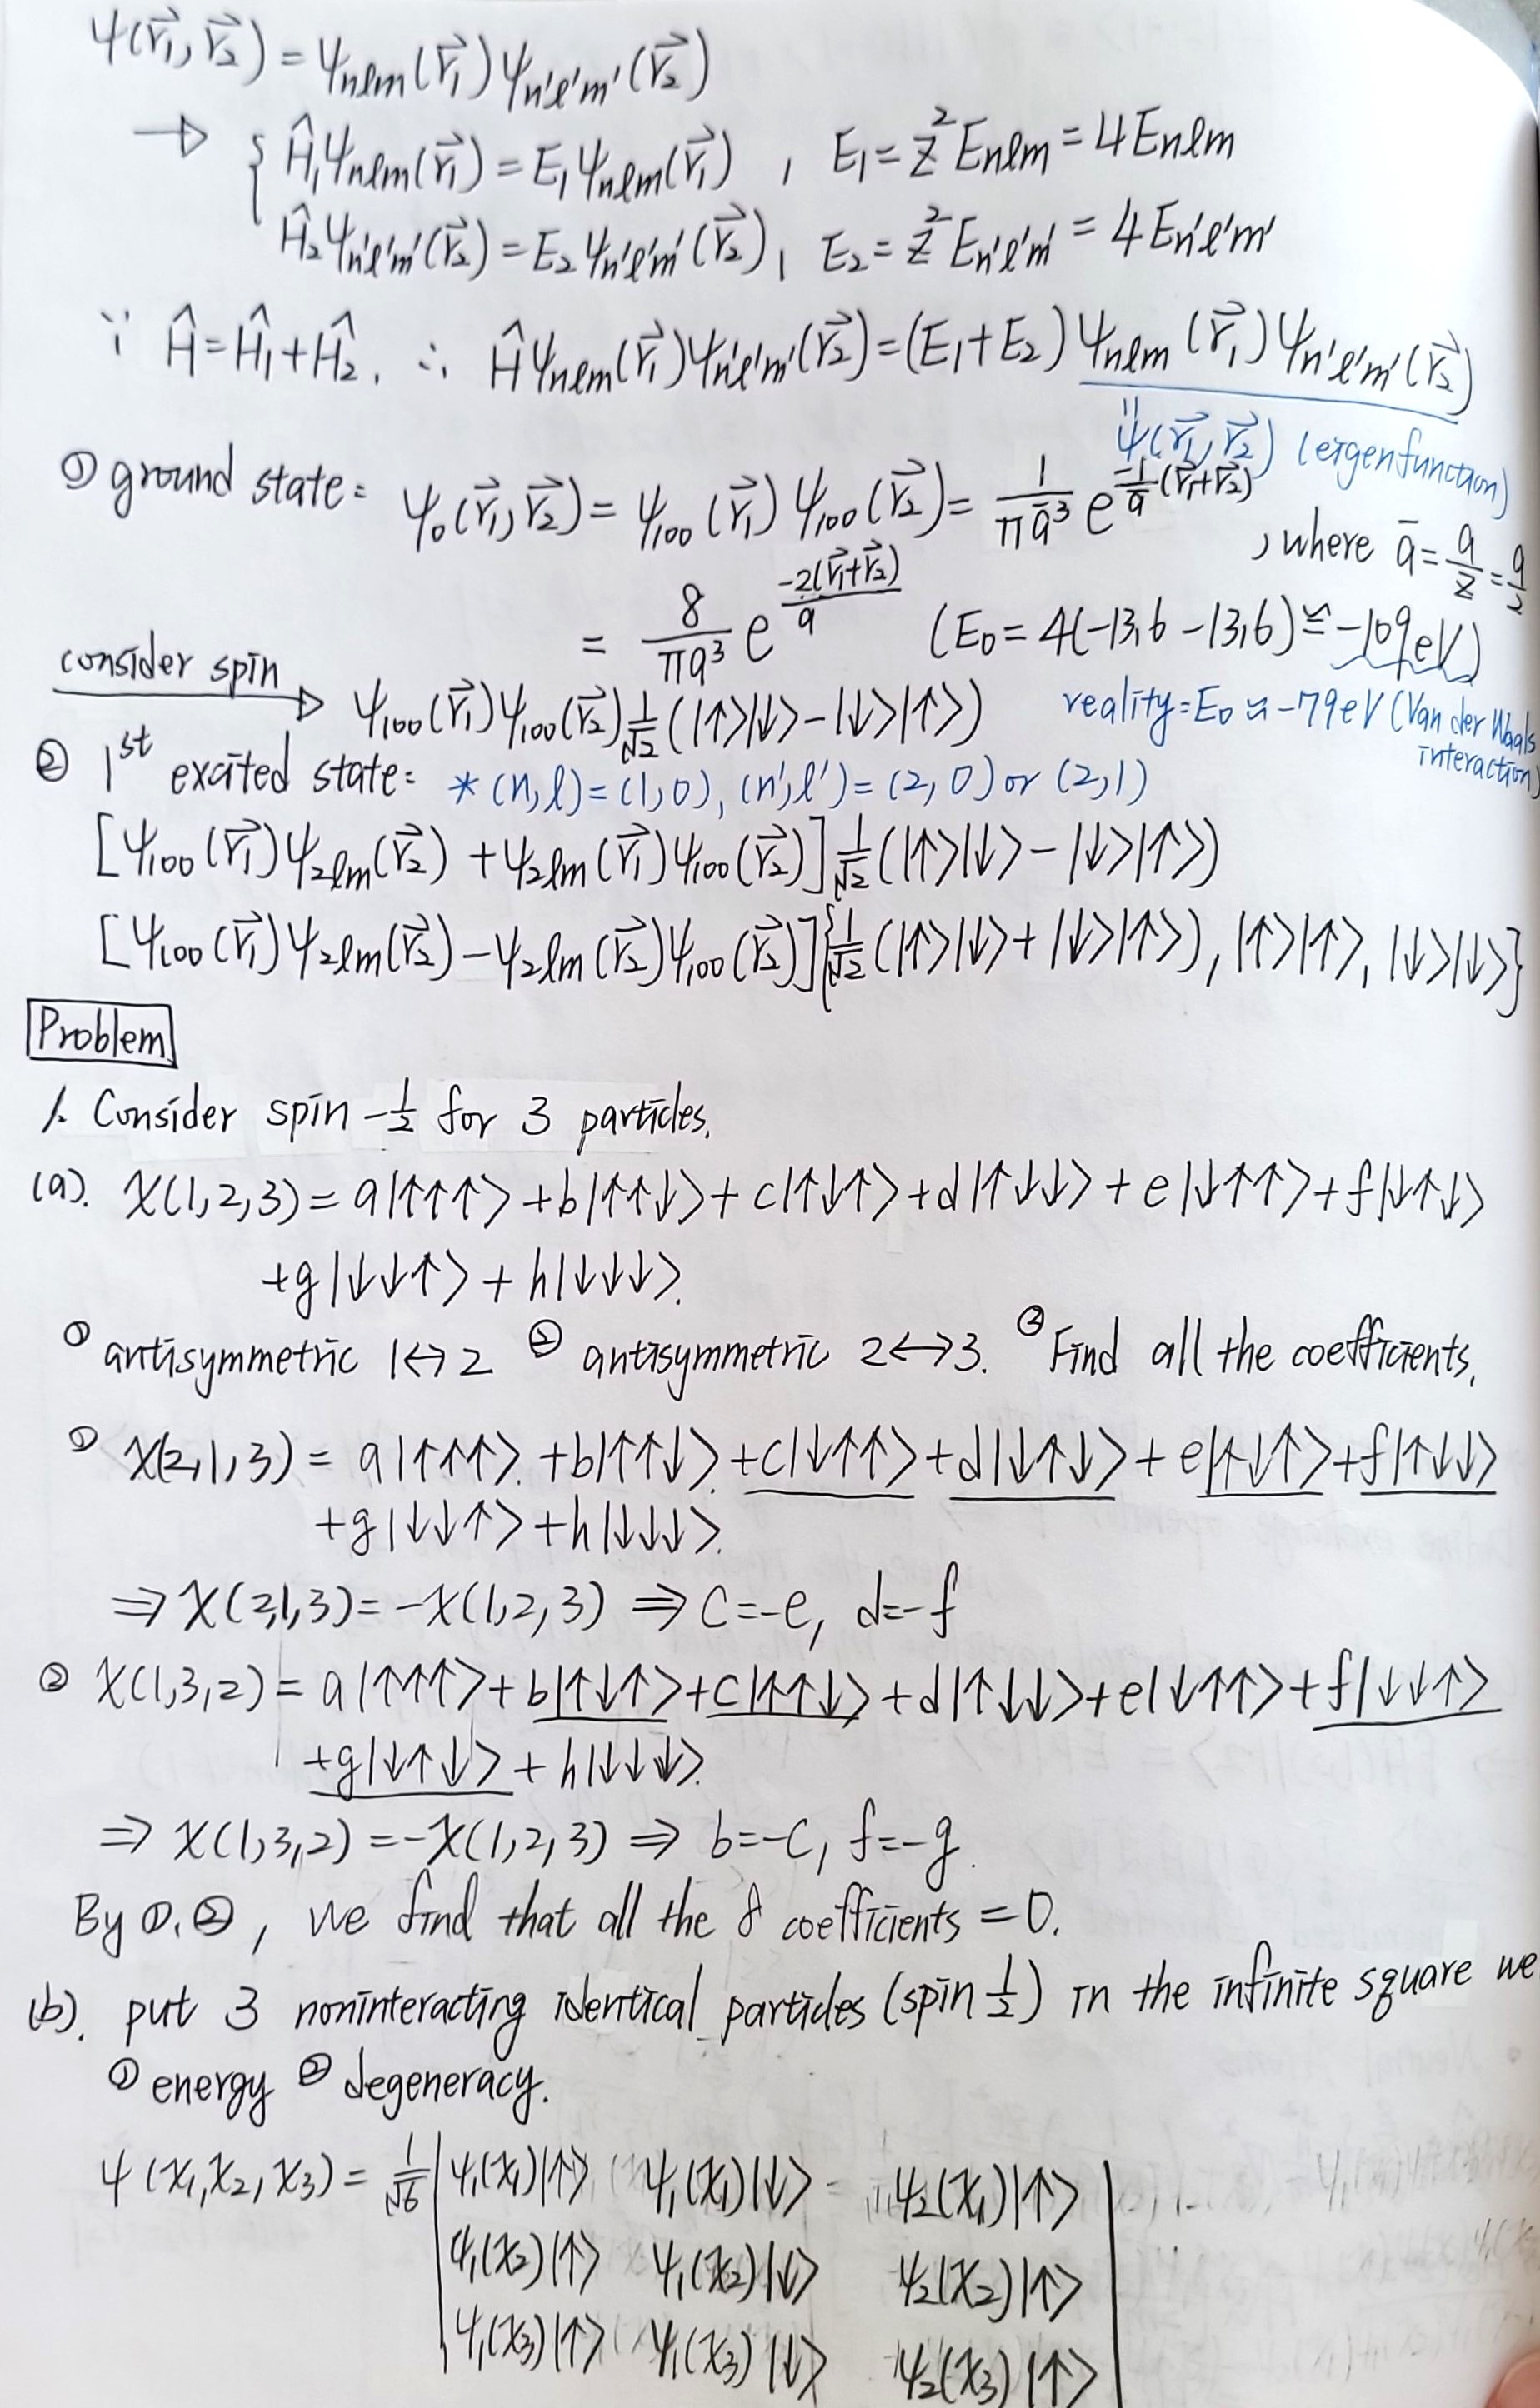 ψ(r⃗₁,r⃗₂) = ψnlm(r⃗₁)ψn'l'm'(r⃗₂)
→ { Ĥ₁ψnlm(r⃗₁) = E₁ψnlm(r⃗₁) , E₁ = Z²Enlm = 4Enlm
Ĥ₂ψn'l'm'(r⃗₂) = E₂ψn'l'm'(r⃗₂), E₂ = Z²En'l'm' = 4En'l'm'
∵ Ĥ = Ĥ₁ + Ĥ₂, ∴ Ĥψnlm(r⃗₁)ψn'l'm'(r⃗₂) = (E₁+E₂)ψnlm(r⃗₁)ψn'l'm'(r⃗₂)
" ψ(r⃗₁,r⃗₂) (eigenfunction)
① ground state: ψ₀(r⃗₁,r⃗₂) = ψ₁₀₀(r⃗₁)ψ₁₀₀(r⃗₂) = 1/(πā³) e^(-1/ā (r⃗₁+r⃗₂)) , where ā = a/Z = a/2
= 8/(πa³) e^(-2(r⃗₁+r⃗₂)/a) (E₀ = 4(-13.6-13.6) ≈ -109eV)
consider spin → ψ₁₀₀(r⃗₁)ψ₁₀₀(r⃗₂) 1/√2 (|↑>|↓> - |↓>|↑>)
reality: E₀ ≈ -79eV (Van der Waals interaction)
② 1st excited state: * (n,l)=(1,0), (n',l')=(2,0) or (2,1)
[ψ₁₀₀(r⃗₁)ψ₂lm(r⃗₂) + ψ₂lm(r⃗₁)ψ₁₀₀(r⃗₂)] 1/√2 (|↑>|↓> - |↓>|↑>)
[ψ₁₀₀(r⃗₁)ψ₂lm(r⃗₂) - ψ₂lm(r⃗₂)ψ₁₀₀(r⃗₂)]{1/√2 (|↑>|↓> + |↓>|↑>), |↑>|↑>, |↓>|↓>}
Problem
1. Consider spin-1/2 for 3 particles.
(a). χ(1,2,3) = a|↑↑↑> + b|↑↑↓> + c|↑↓↑> + d|↑↓↓> + e|↓↑↑> + f|↓↑↓>
+g|↓↓↑> + h|↓↓↓>.
① antisymmetric 1↔2 ② antisymmetric 2↔3. ③ Find all the coefficients.
① χ(2,1,3) = a|↑↑↑> + b|↑↑↓> + c|↓↑↑> + d|↓↑↓> + e|↑↓↑> + f|↑↓↓>
+g|↓↓↑> + h|↓↓↓>.
⇒ χ(2,1,3) = -χ(1,2,3) ⇒ c=-e, d=-f
② χ(1,3,2) = a|↑↑↑> + b|↑↓↑> + c|↑↑↓> + d|↑↓↓> + e|↓↑↑> + f|↓↓↑>
+g|↓↑↓> + h|↓↓↓>.
⇒ χ(1,3,2) = -χ(1,2,3) ⇒ b=-c, f=-g.
By ①.②, we find that all the 8 coefficients = 0.
(b). put 3 noninteracting identical particles (spin 1/2) in the infinite square we
① energy ② degeneracy.
ψ(x₁,x₂,x₃) = 1/√6 | ψ₁(x₁)|↑> ψ₁(x₁)|↓> ψ₂(x₁)|↑> |
ψ₁(x₂)|↑> ψ₁(x₂)|↓> ψ₂(x₂)|↑>
ψ₁(x₃)|↑> ψ₁(x₃)|↓> ψ₂(x₃)|↑>